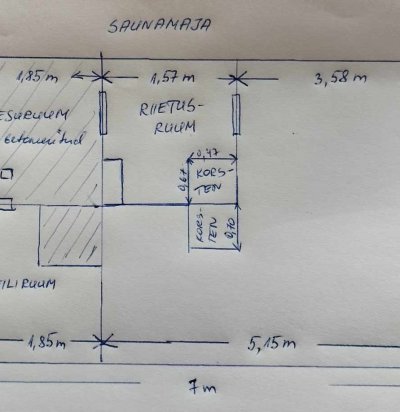 SAUNAMAJA
1,85 m
1,57 m
3,58 m
ESURUUM
betoneeritud
RIIETUS-
RUUM
0,47
0,67
KORS-
TEN
KORS-
TEN
0,70
ILIRUUM
1,85 m
5,15 m
7 m